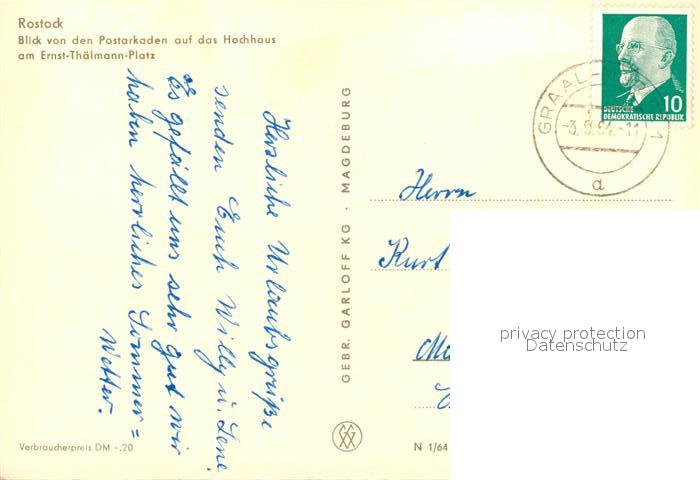 Rostock
Blick von den Postarkaden auf das Hochhaus
am Ernst-Thälmann-Platz
Herzliche Urlaubsgrüße
senden Euch Willy u. Lene.
Es gefällt uns sehr gut wir
haben herrliches Sommer=
Wetter.
Verbraucherpreis DM -,20
GEBR. GARLOFF KG · MAGDEBURG
N 1/64
10
DEUTSCHE
DEMOKRATISCHE REPUBLIK
GRAAL-
-11
a
Herrn
Kurt
privacy protection
Datenschutz